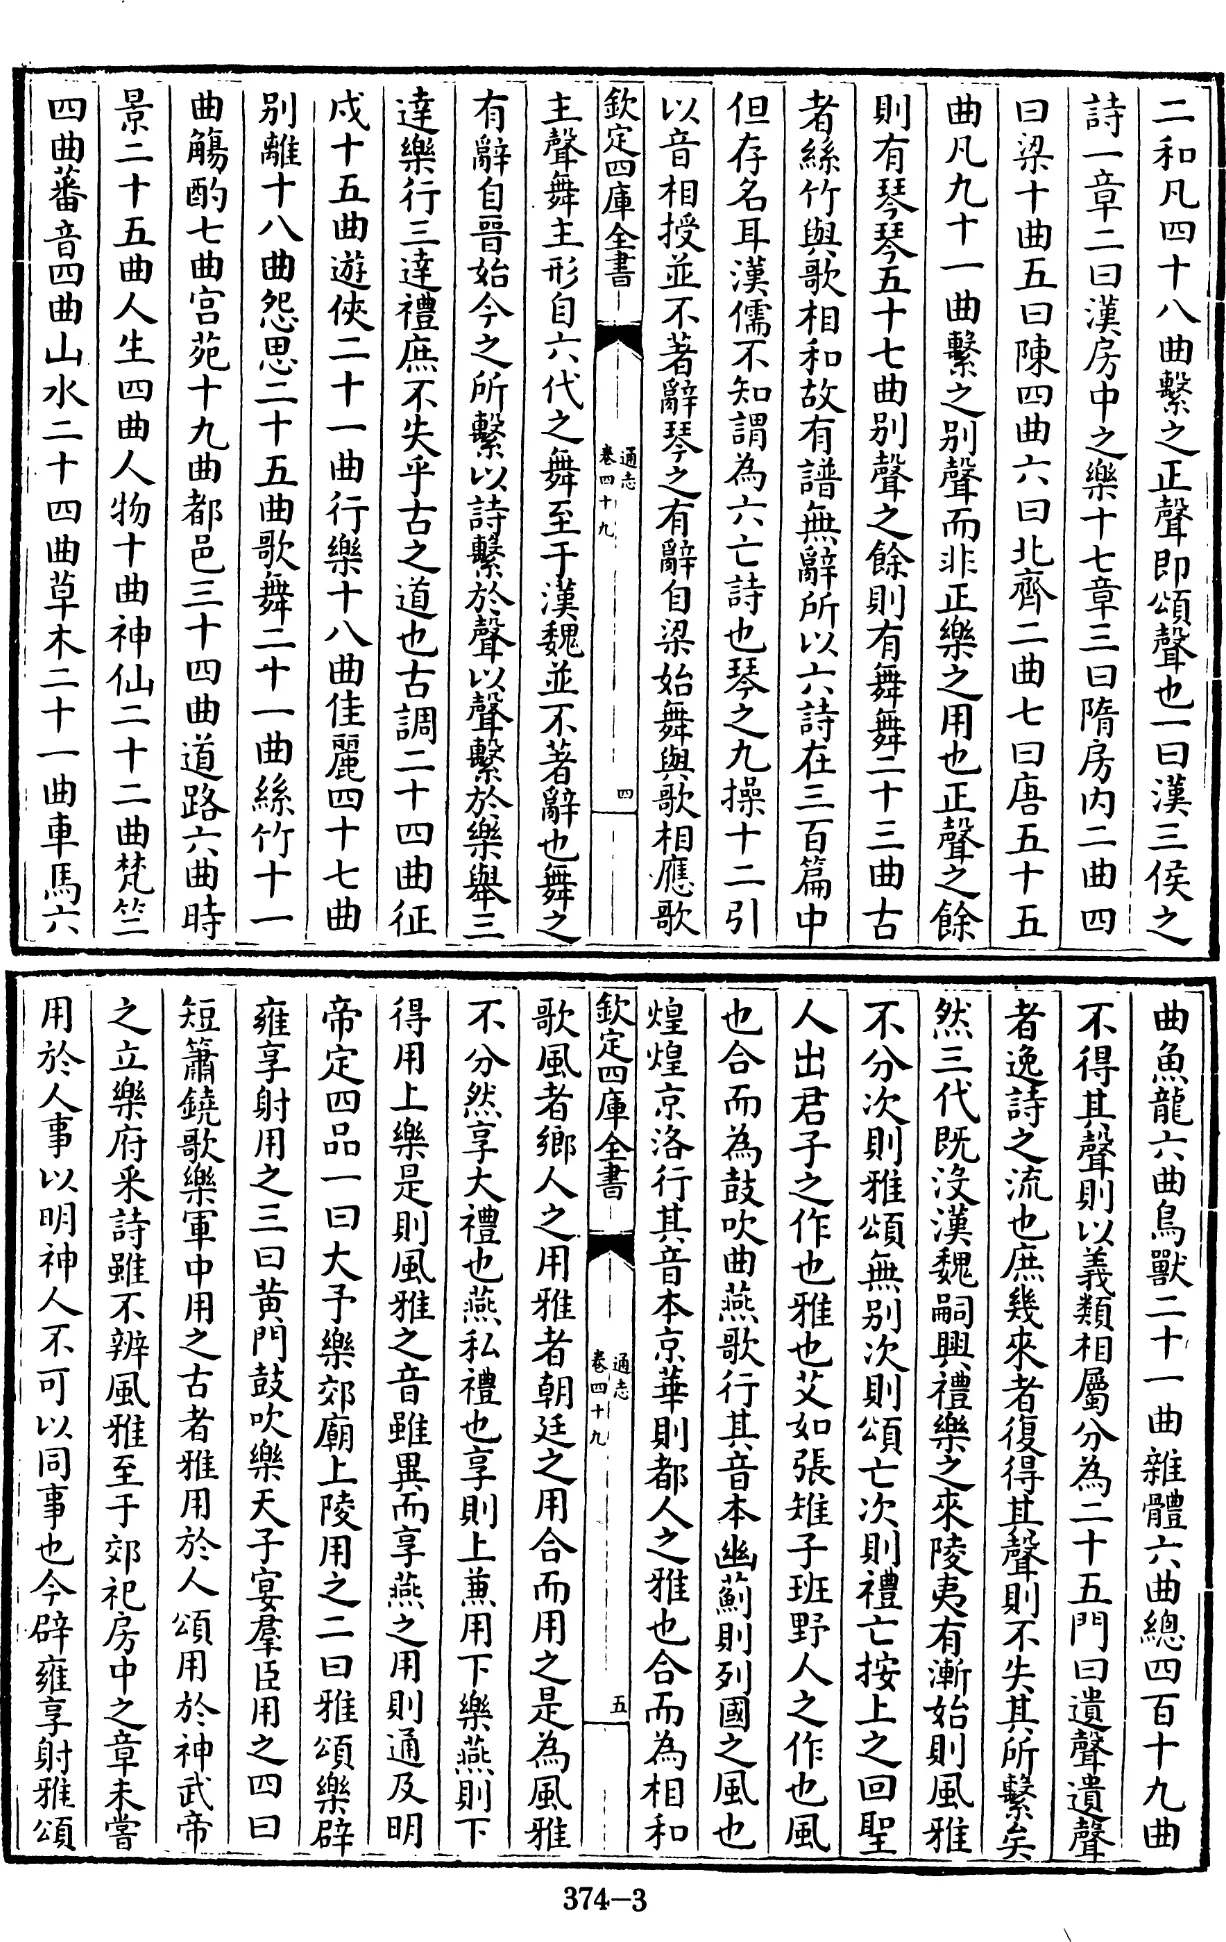 二和凡四十八曲繫之正聲即頌聲也一曰漢三侯之
詩一章二曰漢房中之樂十七章三曰隋房内二曲四
曰梁十曲五曰陳四曲六曰北齊二曲七曰唐五十五
曲凡九十一曲繫之别聲而非正樂之用也正聲之餘
則有琴琴五十七曲别聲之餘則有舞舞二十三曲古
者絲竹與歌相和故有譜無辭所以六詩在三百篇中
但存名耳漢儒不知謂為六亡詩也琴之九操十二引
以音相授並不著辭琴之有辭自梁始舞與歌相應歌
欽定四庫全書
通志
卷四十九
四
主聲舞主形自六代之舞至于漢魏並不著辭也舞之
有辭自晉始今之所繫以詩繫於聲以聲繫於樂舉三
達樂行三達禮庶不失乎古之道也古調二十四曲征
戍十五曲遊俠二十一曲行樂十八曲佳麗四十七曲
别離十八曲怨思二十五曲歌舞二十一曲絲竹十一
曲觴酌七曲宫苑十九曲都邑三十四曲道路六曲時
景二十五曲人生四曲人物十曲神仙二十二曲梵竺
四曲蕃音四曲山水二十四曲草木二十一曲車馬六
曲魚龍六曲鳥獸二十一曲雜體六曲總四百十九曲
不得其聲則以義類相屬分為二十五門曰遺聲遺聲
者逸詩之流也庶幾來者復得其聲則不失其所繫矣
然三代既没漢魏嗣興禮樂之來陵夷有漸始則風雅
不分次則雅頌無别次則頌亡次則禮亡按上之回聖
人出君子之作也雅也艾如張雉子班野人之作也風
也合而為鼓吹曲燕歌行其音本幽薊則列國之風也
煌煌京洛行其音本京華則都人之雅也合而為相和
欽定四庫全書
通志
卷四十九
五
歌風者鄉人之用雅者朝廷之用合而用之是為風雅
不分然享大禮也燕私禮也享則上兼用下樂燕則下
得用上樂是則風雅之音雖異而享燕之用則通及明
帝定四品一曰大予樂郊廟上陵用之二曰雅頌樂辟
雍享射用之三曰黄門鼓吹樂天子宴羣臣用之四曰
短簫鐃歌樂軍中用之古者雅用於人頌用於神武帝
之立樂府采詩雖不辨風雅至于郊祀房中之章未嘗
用於人事以明神人不可以同事也今辟雍享射雅頌
374-3